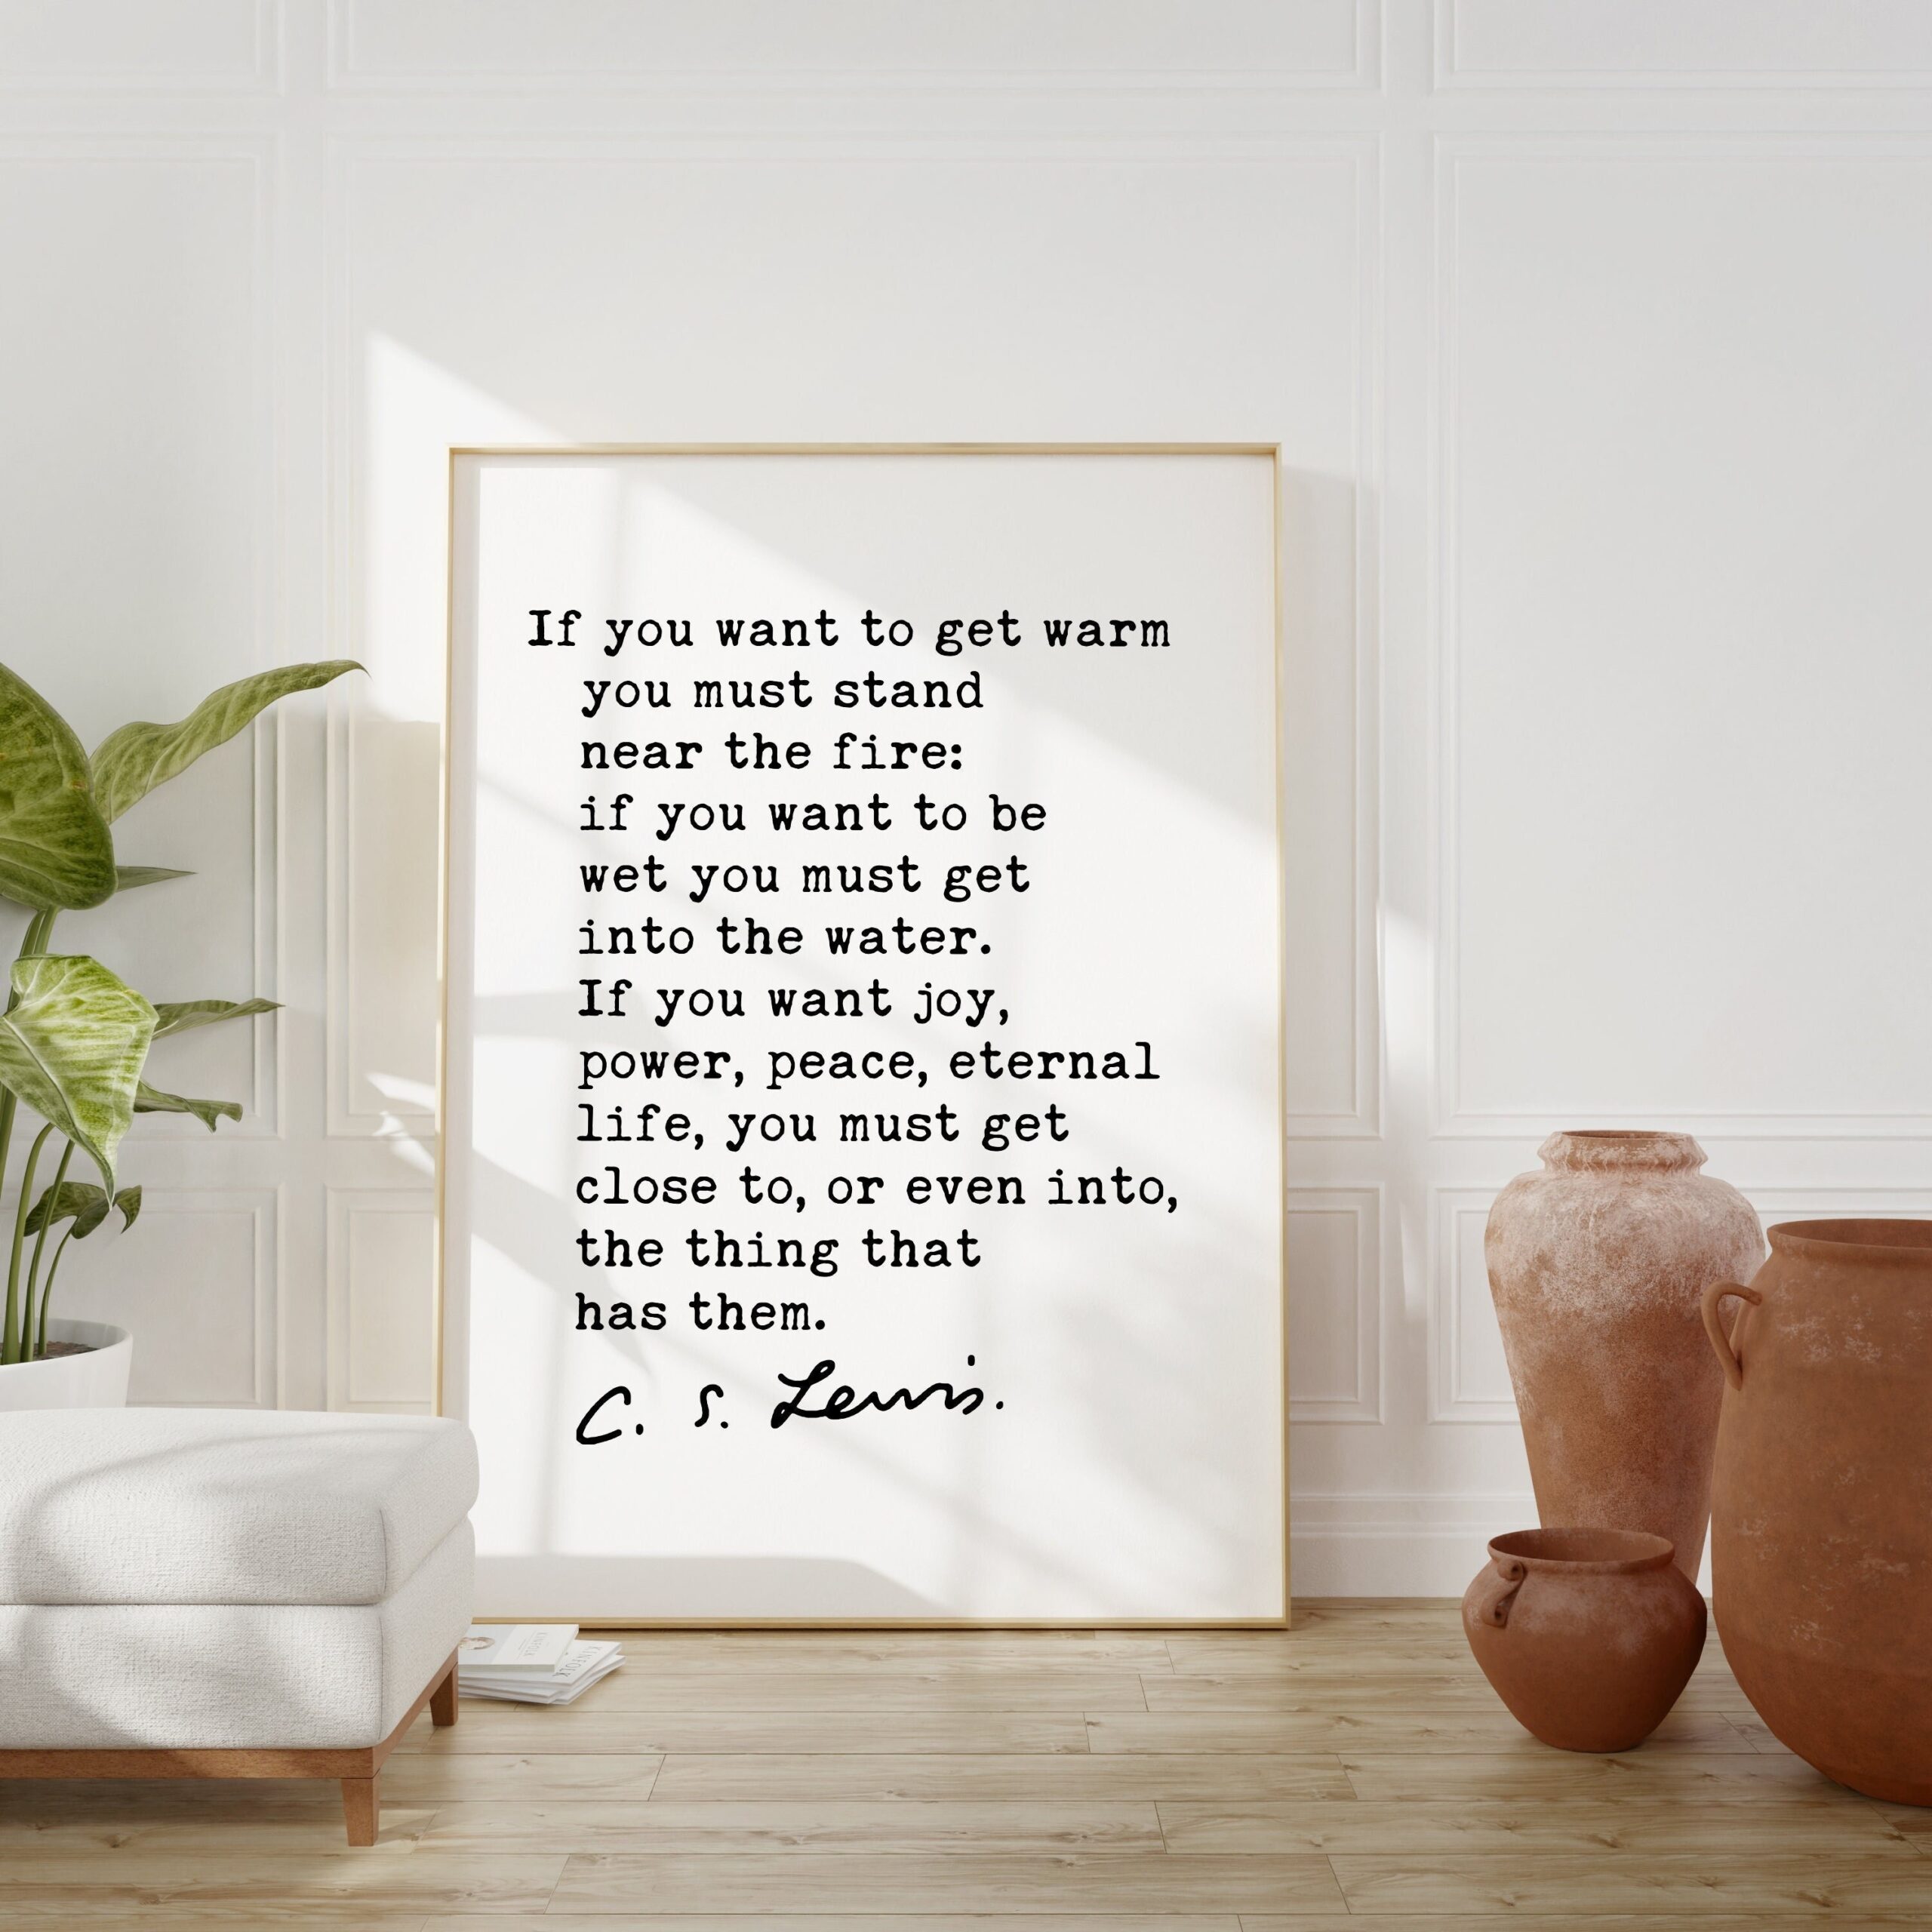 If you want to get warm
you must stand
near the fire:
if you want to be
wet you must get
into the water.
If you want joy,
power, peace, eternal
life, you must get
close to, or even into,
the thing that
has them.
C. S. Lewis.
KINFOLK